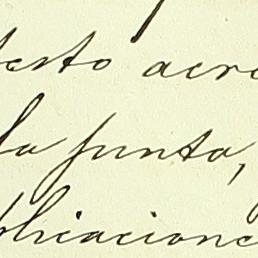 testo acre
la junta,
blicacione